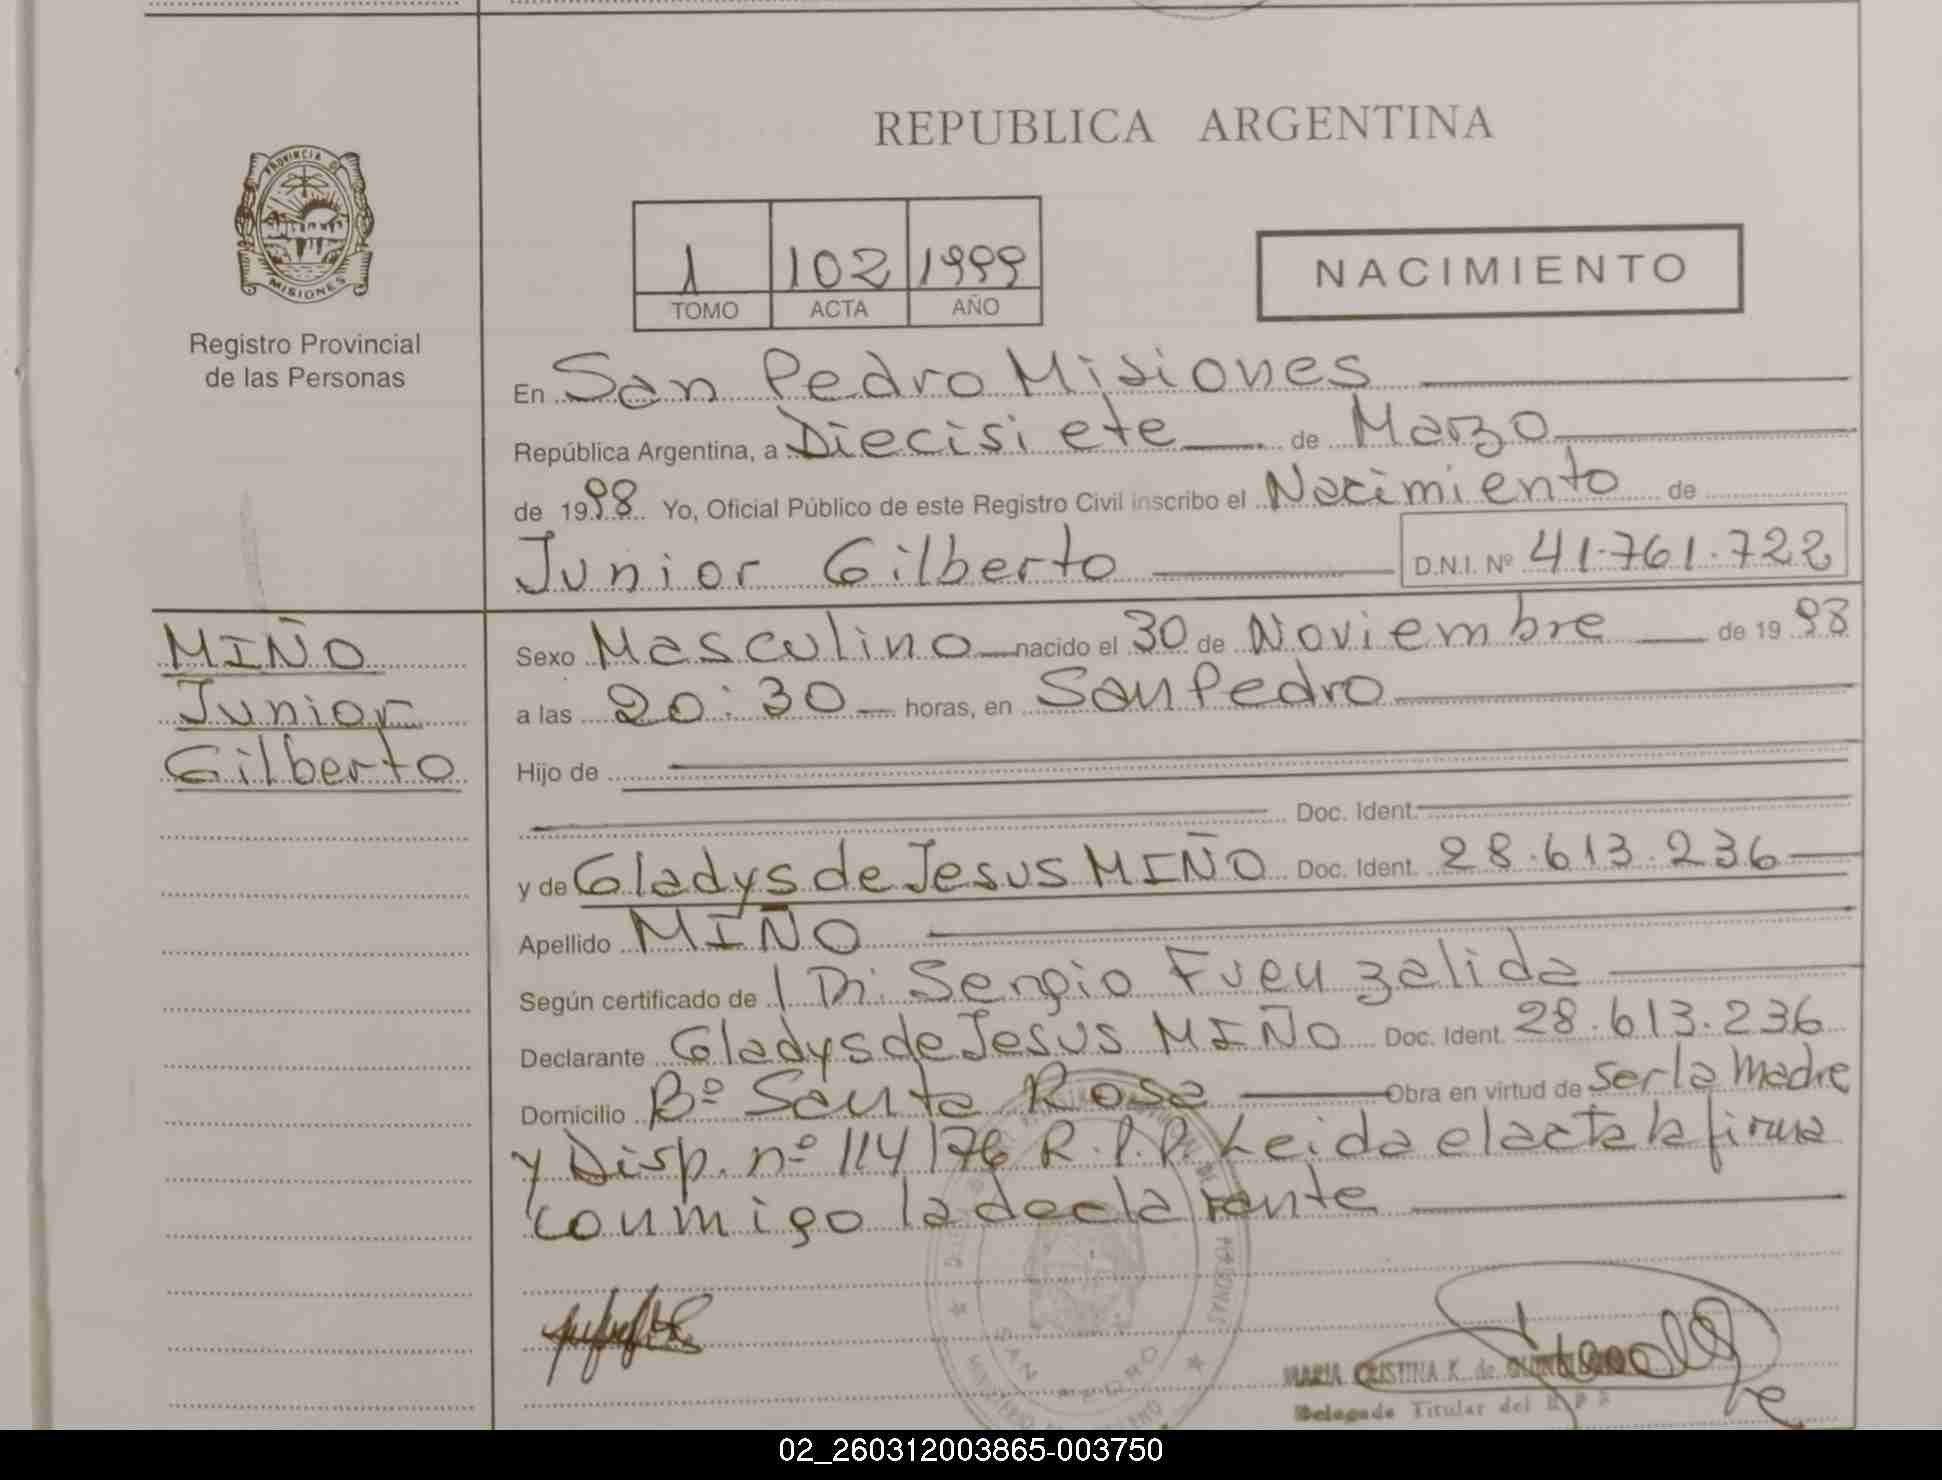 REPUBLICA ARGENTINA
PROVINCIA DE
MISIONES
Registro Provincial
de las Personas
1 102 1999
TOMO ACTA AÑO
NACIMIENTO
En San Pedro Misiones
República Argentina, a Diecisiete de Marzo
de 1998 Yo, Oficial Público de este Registro Civil inscribo el Nacimiento de
Junior Gilberto D.N.I. Nº 41.761.722
MIÑO
Junior
Gilberto
Sexo Masculino nacido el 30 de Noviembre de 1998
a las 20:30 horas, en San Pedro
Hijo de
Doc. Ident.
y de Gladys de Jesus MIÑO Doc. Ident. 28.613.236
Apellido MIÑO
Según certificado de Dr. Sergio Fuenzalida
Declarante Gladys de Jesus MIÑO Doc. Ident. 28.613.236
Domicilio Bº Santa Rosa Obra en virtud de ser la madre
y Disp. nº 114/76 R.P.P. Leida el acta la firma
conmigo la declarante
SAN PEDRO
MARIA CRISTINA K. de
Delegada Titular del R P P
02_260312003865-003750